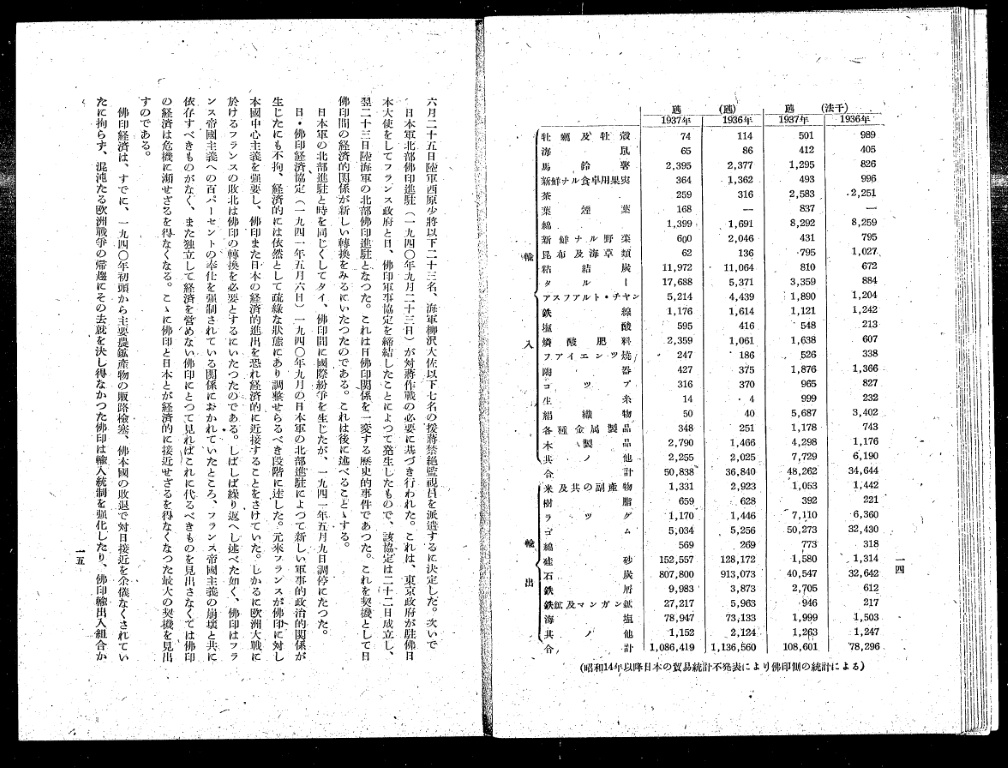 瓲 (瓲) 瓲 (法千)
1937年 1936年 1937年 1936年
輸入
牡蠣及牡殻 74 114 501 989
海鼠 65 86 412 405
馬鈴薯 2,395 2,377 1,295 826
新鮮ナル食卓用果実 364 1,362 493 996
茶 259 316 2,583 2,251
葉煙葉 168 — 837 —
綿 1,399 1,691 8,292 8,259
新鮮ナル野菜 600 2,046 431 795
昆布及海草類 62 136 795 1,027
粘結炭 11,972 11,064 810 672
タール 17,688 5,371 3,359 884
アスファルト・チヤン 5,214 4,439 1,890 1,204
鉄線 1,176 1,614 1,121 1,242
塩酸 595 416 548 213
燐酸肥料 2,359 1,061 1,638 607
フアイエンツ焼 247 186 526 338
陶器 427 375 1,876 1,366
コツア 316 370 965 827
生糸 14 4 999 232
絹織物 50 40 5,687 3,402
各種金属製品 348 251 1,178 743
木製品 2,790 1,466 4,298 1,176
其ノ他 2,255 2,025 7,729 6,190
合計 50,838 36,840 48,262 34,644
輸出
米及其の副産物 1,331 2,923 1,053 1,442
樹脂 659 628 392 221
ラツグ 1,170 1,446 7,110 6,360
ゴム 5,034 5,256 50,273 32,430
綿 569 269 773 318
硅砂 152,557 128,172 1,580 1,314
石炭 807,800 913,073 40,547 32,642
鉄屑 9,983 3,873 2,705 612
鉄鉱及マンガン鉱 27,217 5,963 946 217
海塩 78,947 73,133 1,999 1,503
其ノ他 1,152 2,124 1,263 1,247
合計 1,086,419 1,136,560 108,601 78,296
(昭和14年以降日本の貿易統計不発表により佛印側の統計による)
一四
六月二十五日陸軍西原少将以下二十三名、海軍柳沢大佐以下七名の援蒋禁絶監視員を派遣するに決定した。次いで
日本軍北部佛印進駐(一九四〇年九月二十三日)が対蒋作戦の必要に基づき行われた。これは、東京政府が駐佛日
本大使をしてフランス政府と日、佛印軍事協定を締結したことによつて発生したもので、該協定は二十二日成立し、
翌二十三日陸海軍の北部佛印進駐となつた。これは日佛印関係を一変する歴史的事件であつた。これを契機として日
佛印間の経済的関係が新しい転換をみるにいたつたのである。これは後に述べることゝする。
日本軍の北部進駐と時を同じくしてタイ、佛印間に國際紛争を生じたが、一九四一年五月九日調停にたつた。
日・佛印経済協定(一九四一年五月六日)一九四〇年九月の日本軍の北部進駐によつて新しい軍事的政治的関係が
生じたにも不拘、経済的には依然として疏縁な状態にあり調整せらるべき段階に達した。元来フランスが佛印に対し
本國中心主義を強要し、佛印また日本の経済的進出を恐れ経済的に近接することをさけていた。しかるに欧洲大戦に
於けるフランスの敗北は佛印の轉換を必要とするにいたつたのである。しばしば繰り返へし述べた如く、佛印はフラ
ンス帝國主義への百パーセントの奉仕を強制されている関係におかれていたところ、フランス帝國主義の崩壊と共に
依存すべきものがなく、また独立して経済を営めない佛印にとつて見ればこれに代るべきものを見出さなくては佛印
の経済は危機に瀕せざるを得なくなる。こゝに佛印と日本とが経済的に接近せざるを得なくなつた最大の契機を見出
すのである。
佛印経済は、すでに、一九四〇年初頭から主要農鉱産物の販路梗塞、佛本國の敗退で対日接近を余儀なくされてい
たに拘らず、混沌たる欧洲戦争の帰趨にその去就を決し得なかつた佛印は輸入統制を強化したり、佛印輸出入組合か
一五